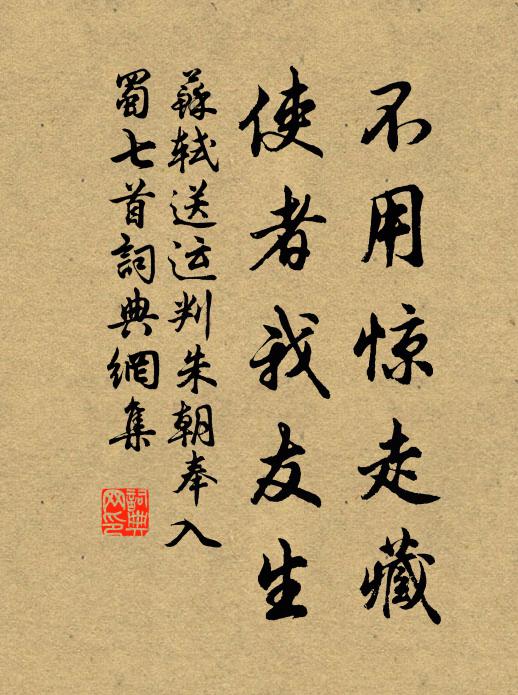 不用惊走藏
使者我友生
蘇軾送运判朱朝奉入
蜀七首詞典網集
詞典网印